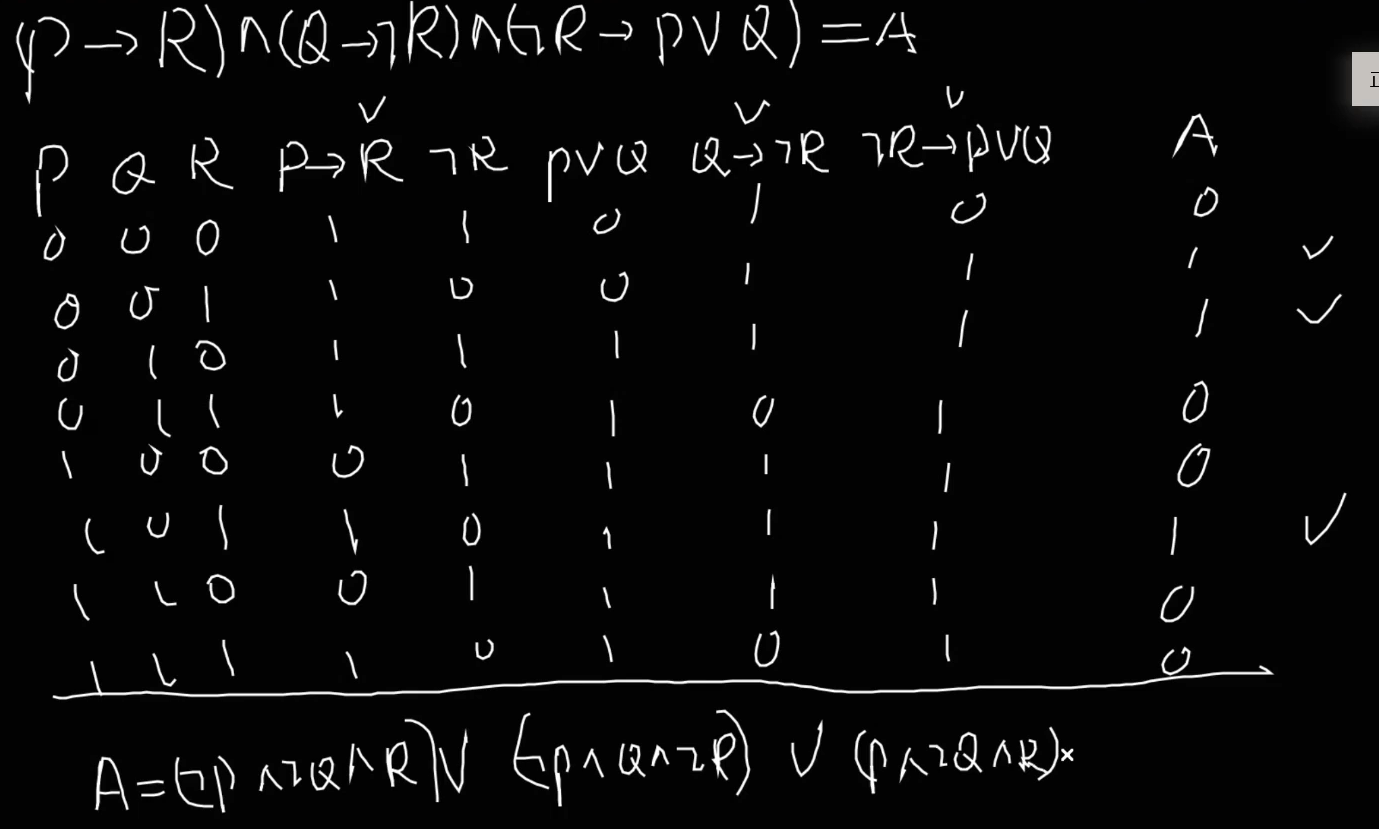 (P→R)∧(Q→¬R)∧(¬R→P∨Q)=A
P Q R P→R ¬R P∨Q Q→¬R ¬R→P∨Q A
0 0 0 1 1 0 1 0 0
0 0 1 1 0 0 1 1 1 ✓
0 1 0 1 1 1 1 1 1 ✓
0 1 1 1 0 1 0 1 0
1 0 0 0 1 1 1 1 0
1 0 1 1 0 1 1 1 1 ✓
1 1 0 0 1 1 1 1 0
1 1 1 1 0 1 0 1 0
A=(¬P∧¬Q∧R)∨(¬P∧Q∧¬R)∨(P∧¬Q∧R)